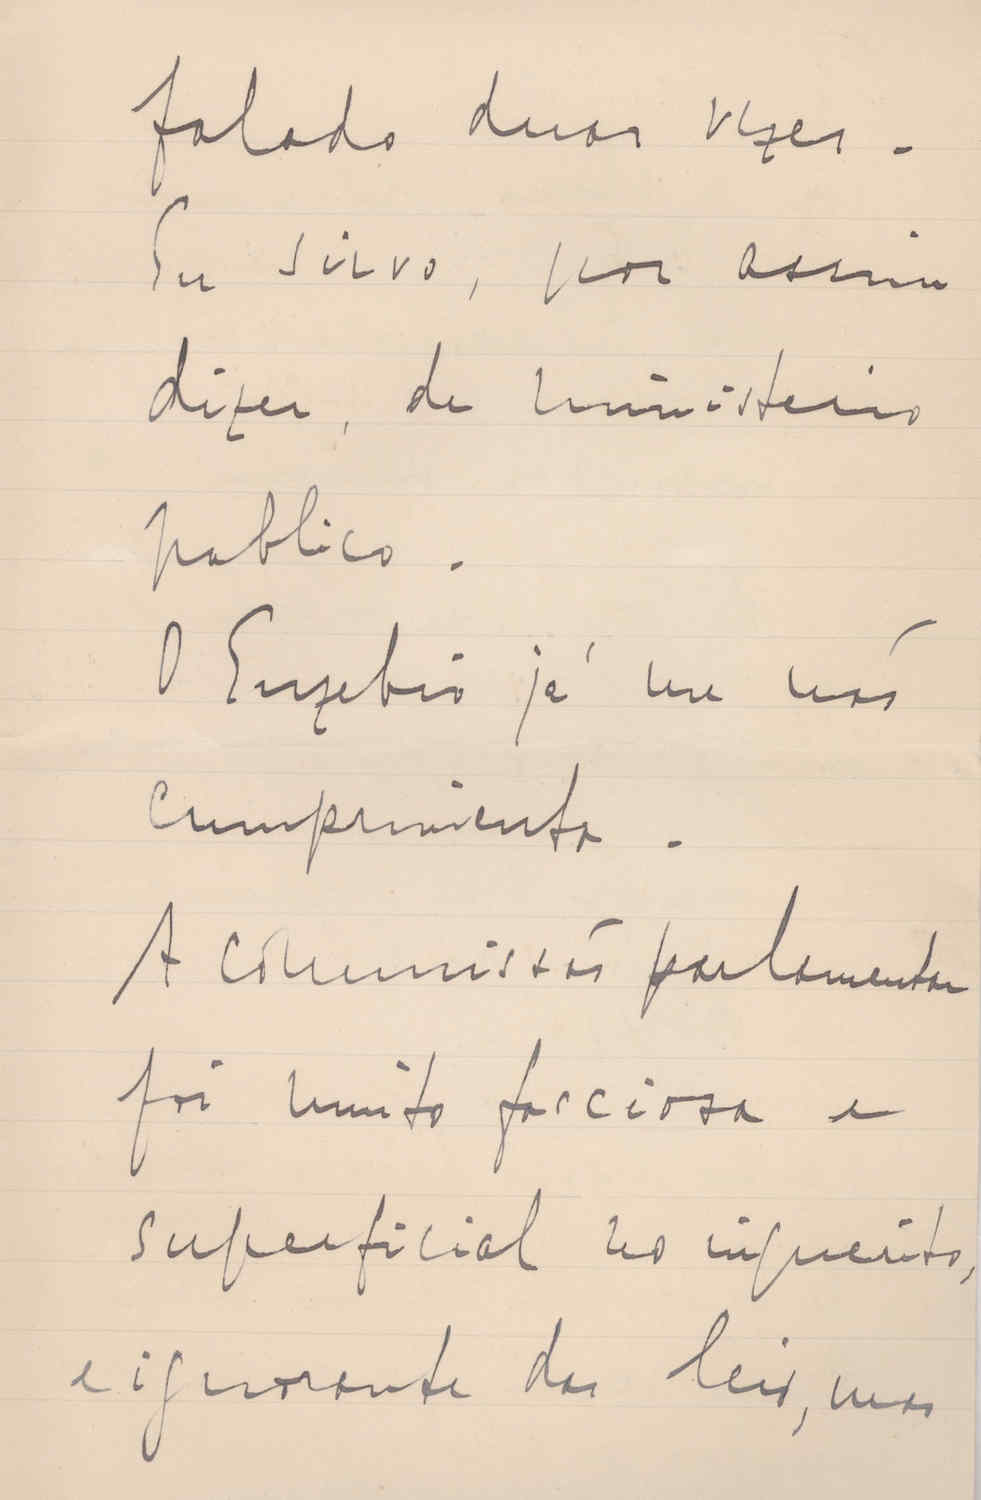 falado duas vezes.
Eu sirvo, por assim
dizer, de ministerio
publico.
O Euzebio já me não
cumprimenta.
A commissão parlamentar
foi muito facciosa e
superficial no inquerito,
e ignorante das leis, mas